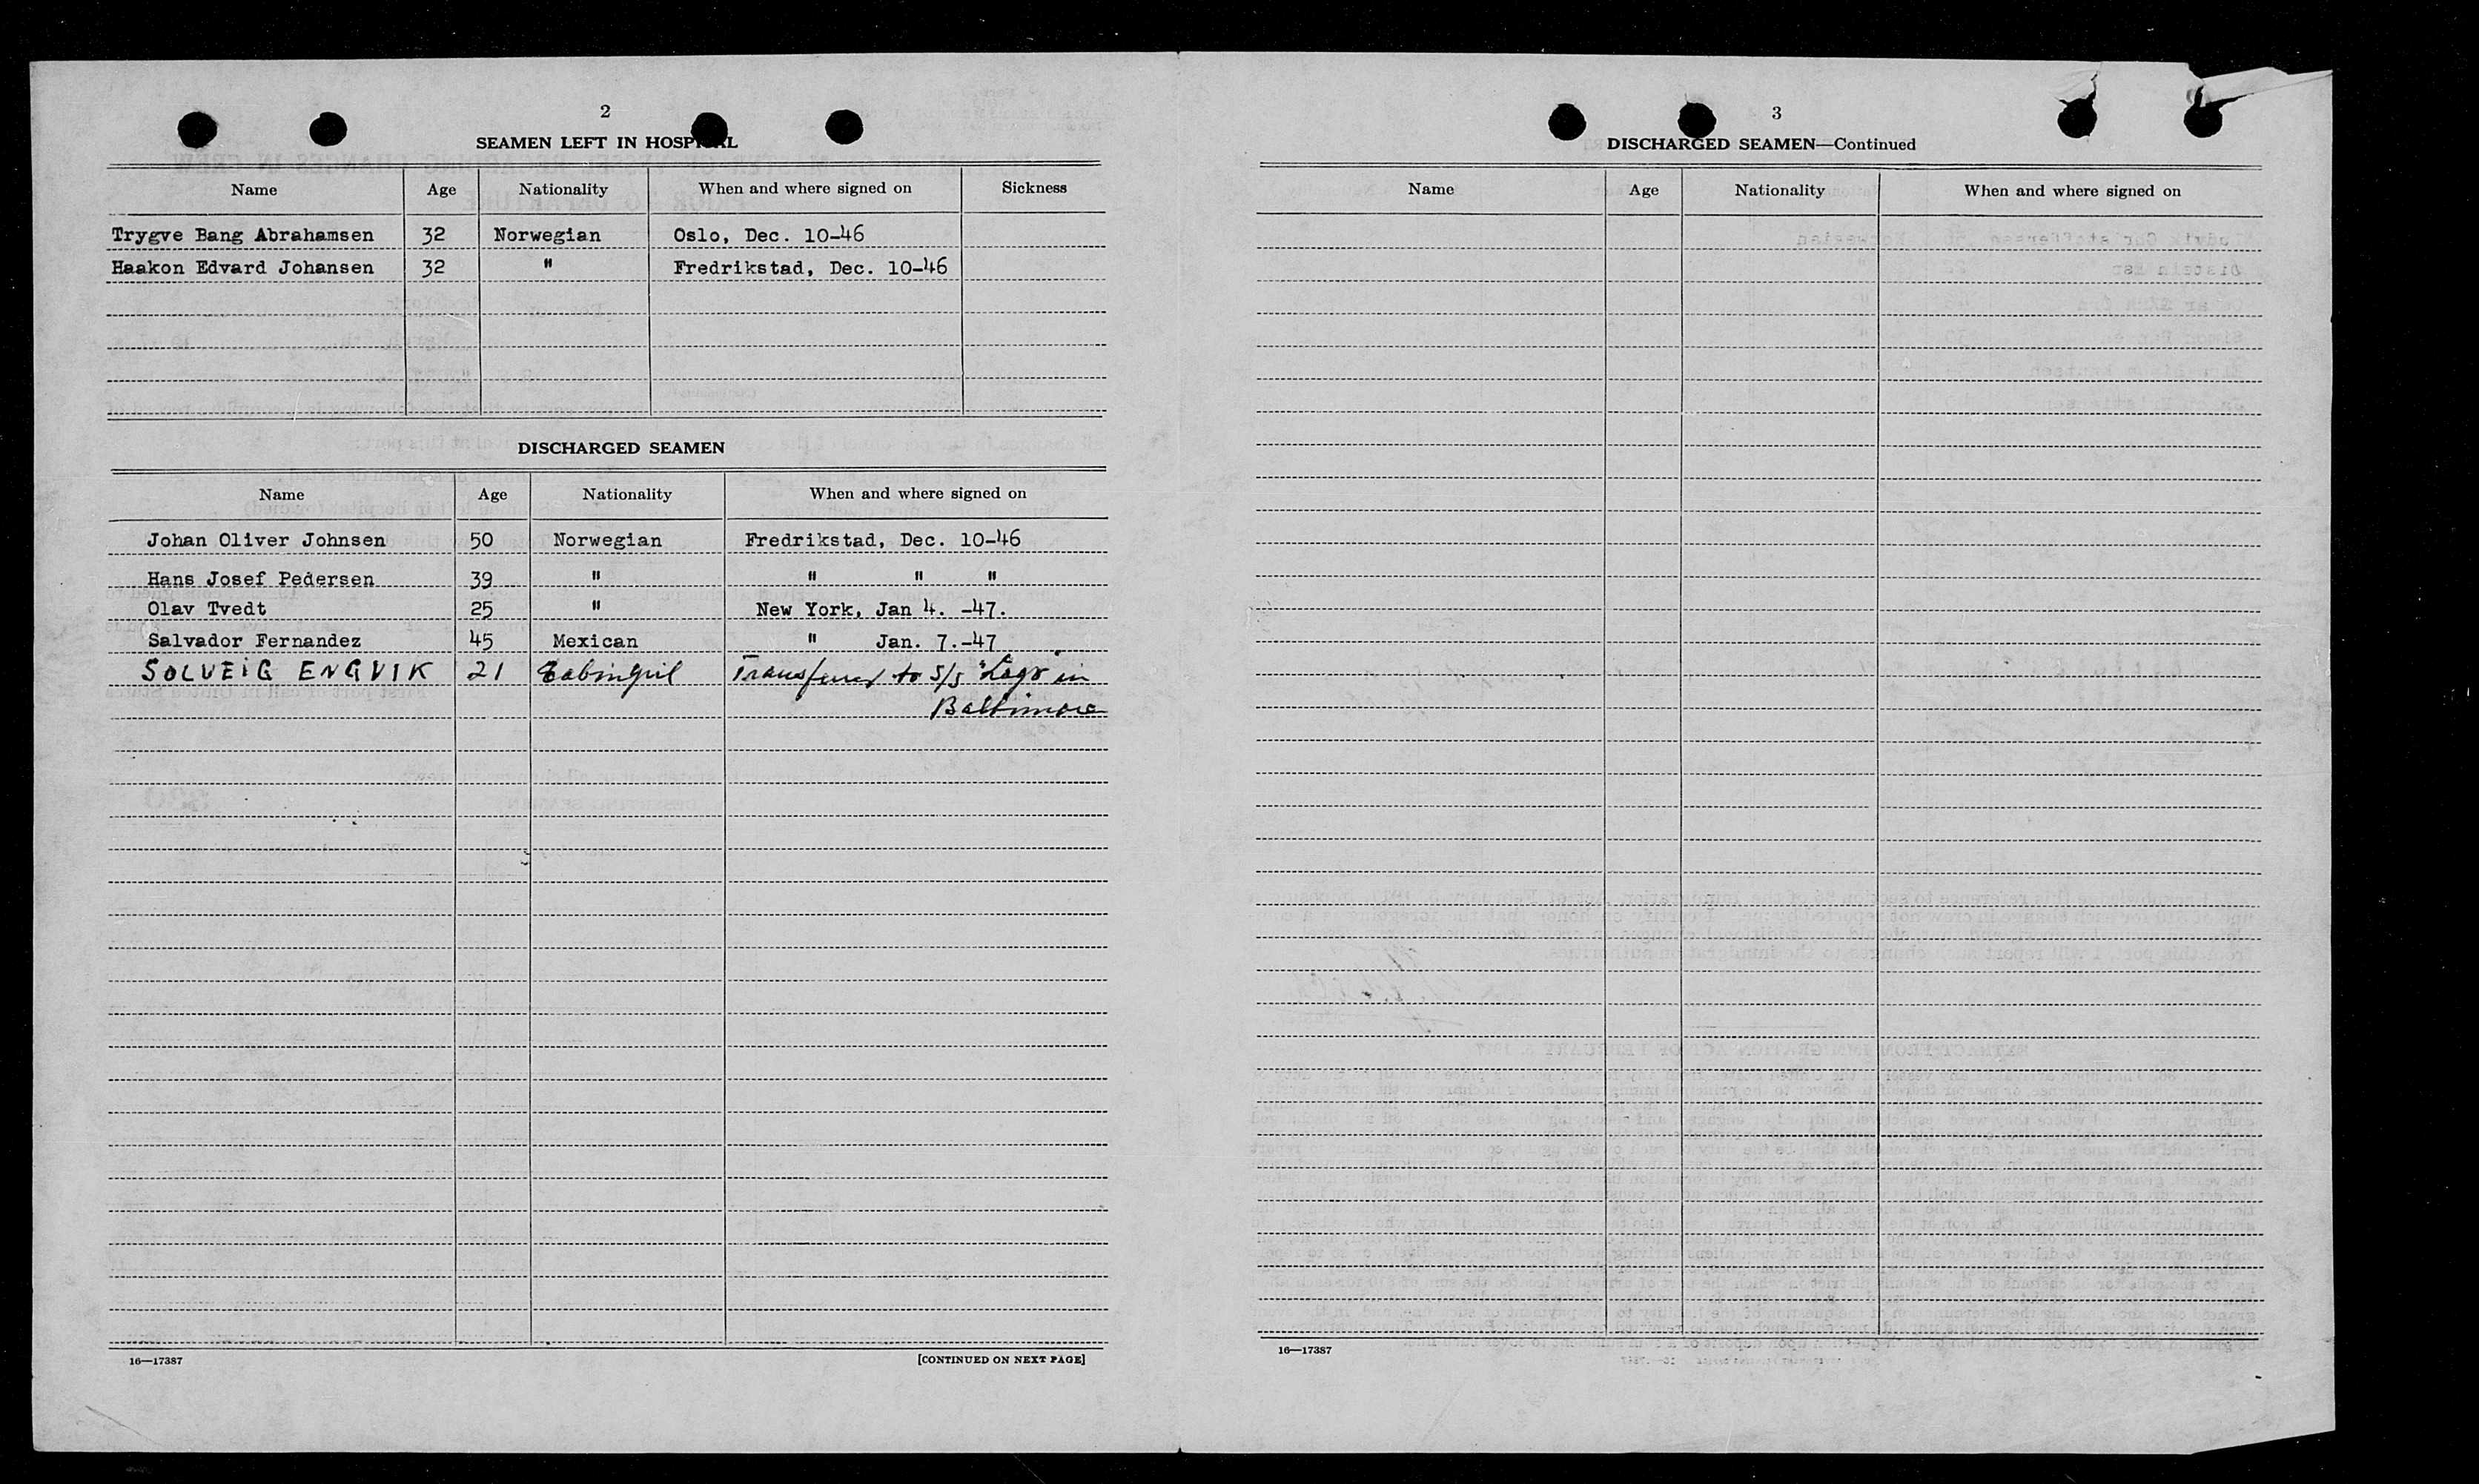 2
SEAMEN LEFT IN HOSPITAL
Name Age Nationality When and where signed on Sickness
Trygve Bang Abrahamsen 32 Norwegian Oslo, Dec. 10-46
Haakon Edvard Johansen 32 " Fredrikstad, Dec. 10-46
DISCHARGED SEAMEN
Name Age Nationality When and where signed on
Johan Oliver Johnsen 50 Norwegian Fredrikstad, Dec. 10-46
Hans Josef Pedersen 39 " " " "
Olav Tvedt 25 " New York, Jan 4. -47.
Salvador Fernandez 45 Mexican " Jan. 7.-47
SOLVEIG ENGVIK 21 Transferred to S/S in
Baltimore
16—17387 [CONTINUED ON NEXT PAGE]
3
DISCHARGED SEAMEN—Continued
Name Age Nationality When and where signed on
16—17387